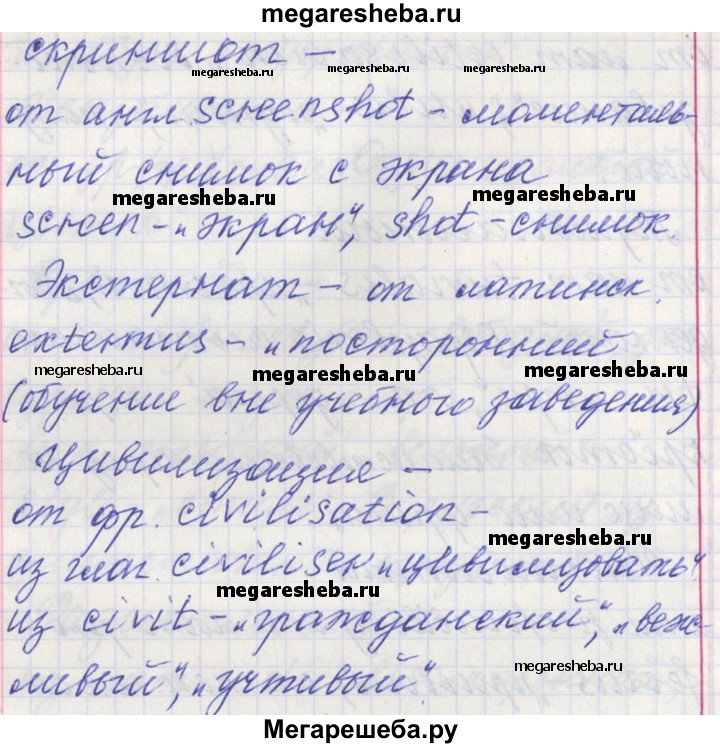 megaresheba.ru
скриншот –
megaresheba.ru megaresheba.ru megaresheba.ru
от англ. screenshot – моменталь-
ный снимок с экрана
megaresheba.ru megaresheba.ru
screen – „экран“, shot – снимок.
Экстернат – от латинск.
externus – „посторонний
megaresheba.ru megaresheba.ru megaresheba.ru
(обучение вне учебного заведения)
Цивилизация –
от фр. civilisation –
megaresheba.ru megaresheba.ru
из глаг. civiliser „цивилизовать“
megaresheba.ru
из civit – „гражданский“, „веж-
megaresheba.ru
ливый“, „учтивый“.
Мегарешеба.ру